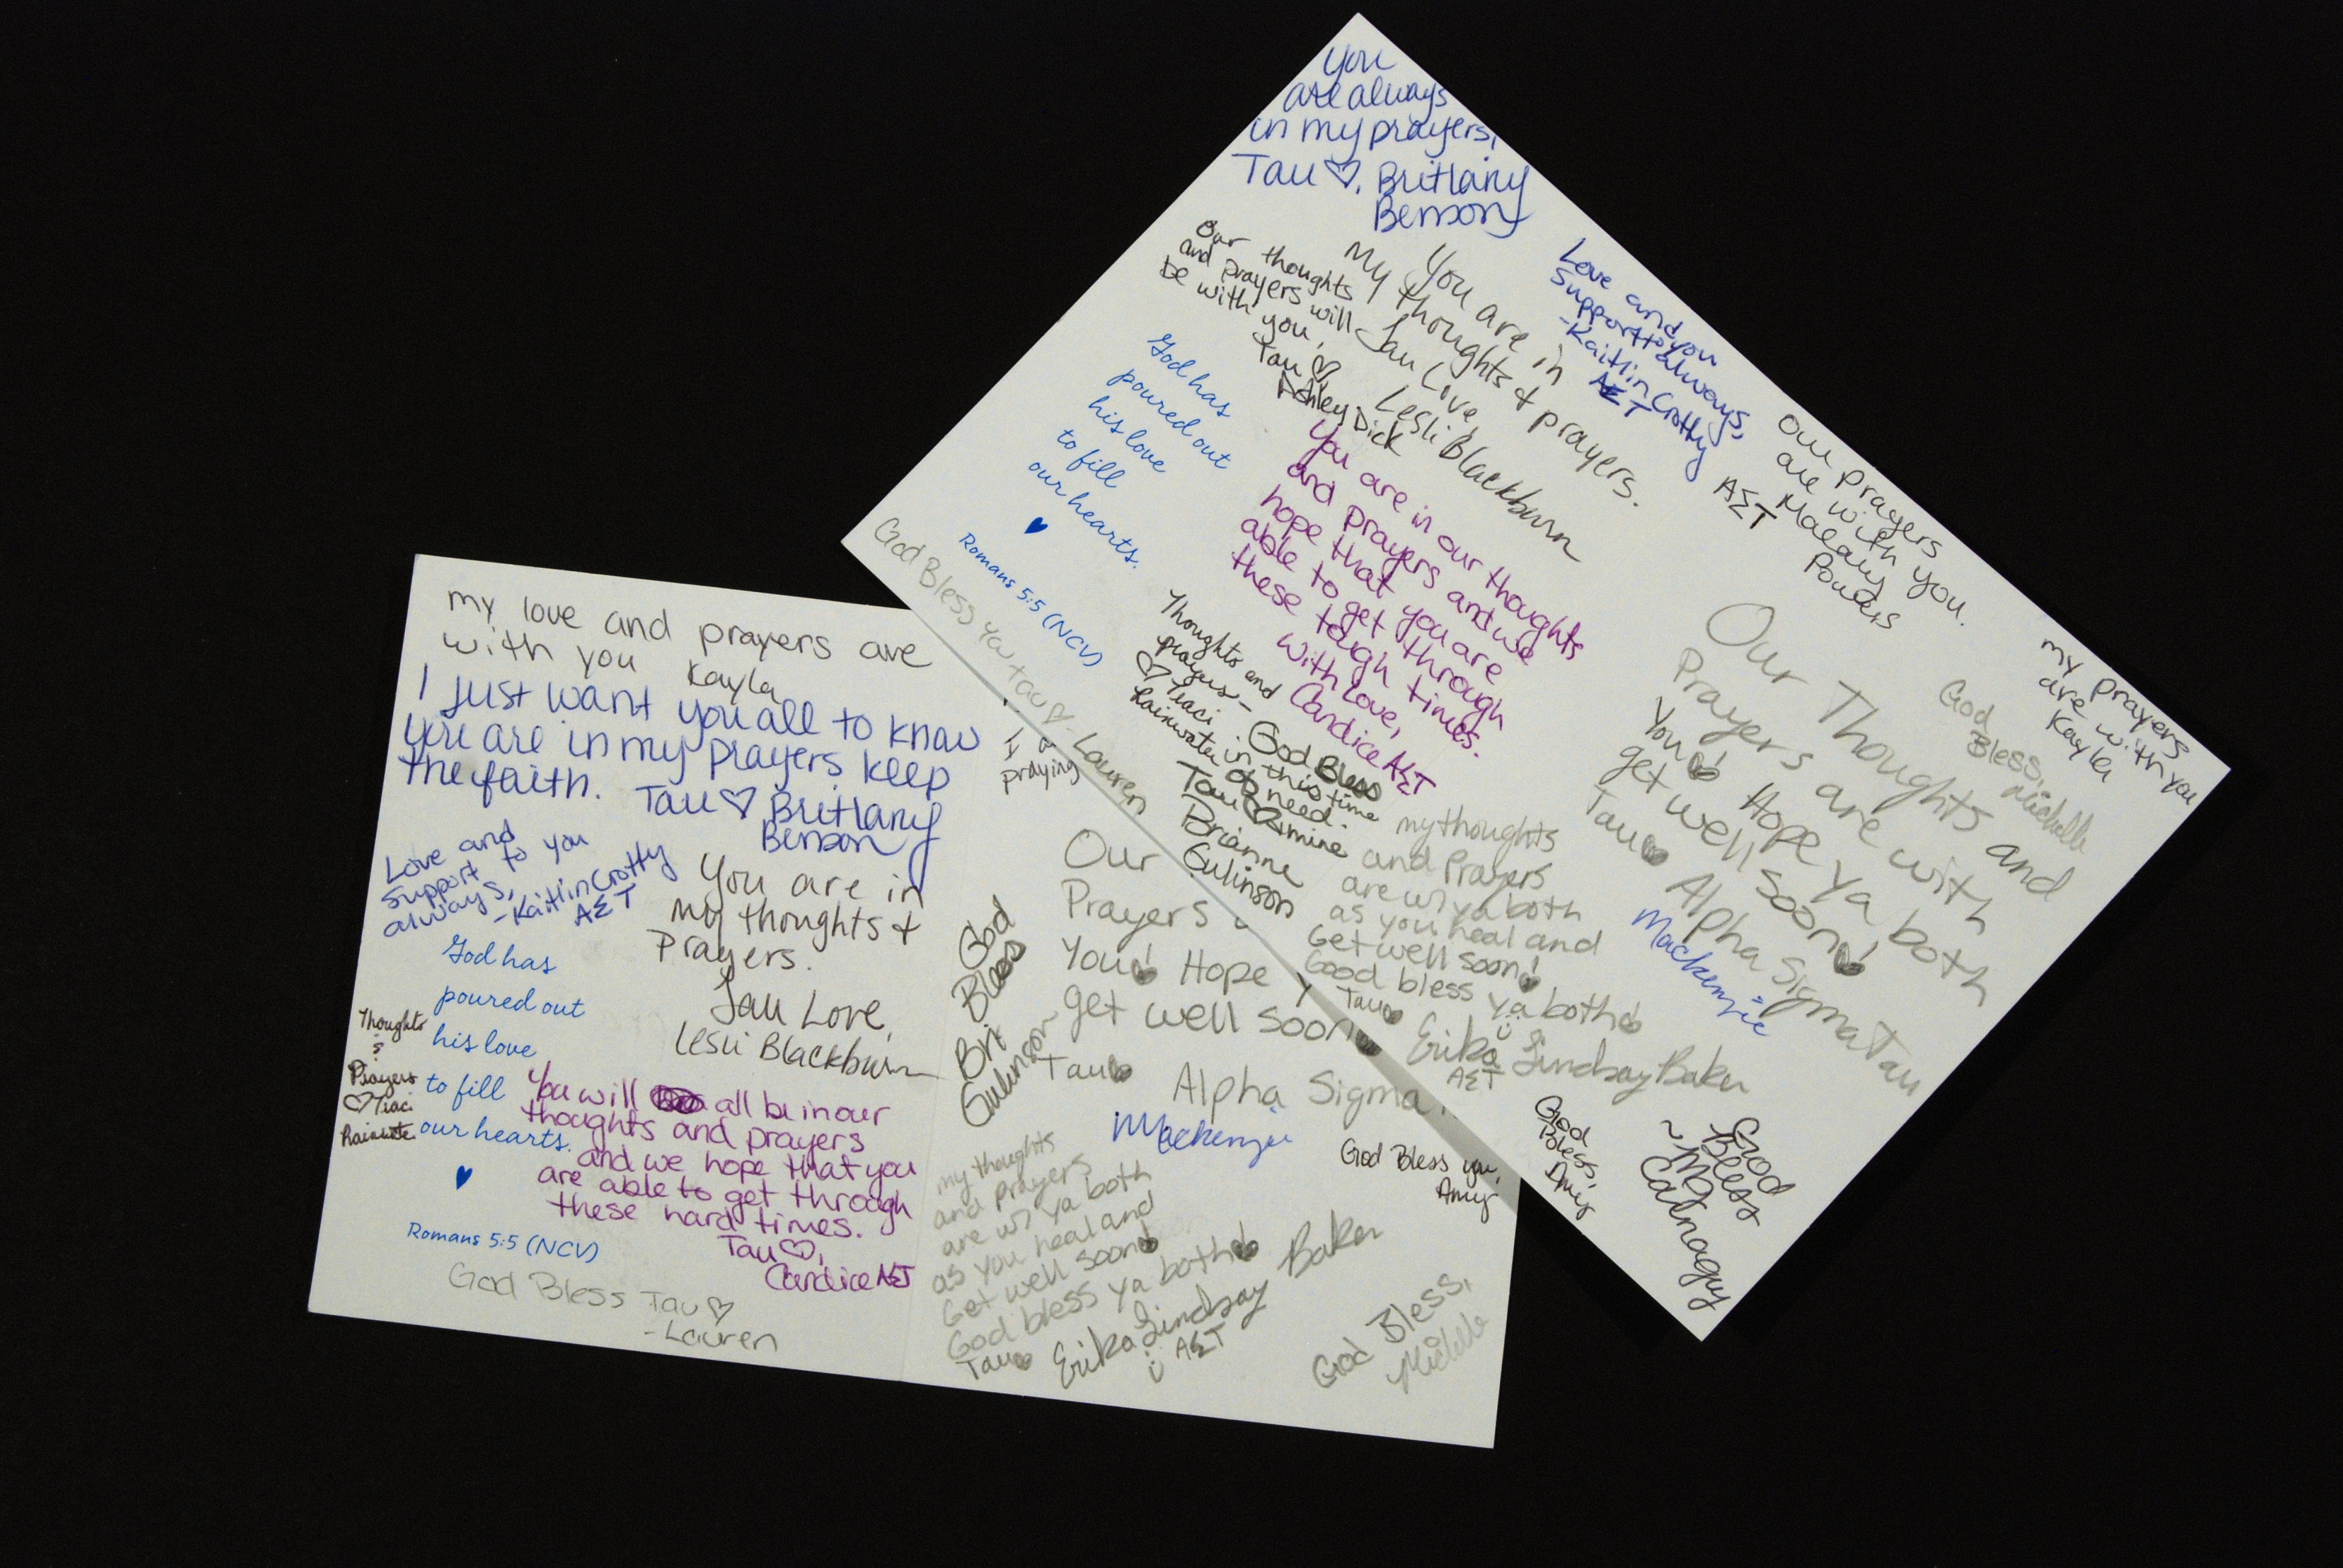 You
are always
in my prayers,
Tau ♡, Brittany
Benson
Our thoughts
and prayers will
be with you,
Tau ♡
Ashley Dick
You are in
my thoughts + prayers.
Tau Love,
Lesli Blackburn
Love and
Support to you
always,
-Kaitlin Crotty
ΑΣΤ
Our prayers
are with you.
ΑΣΤ
Powers
my prayers
are with you
Kayla
God has
poured out
his love
to fill
our hearts.
Romans 5:5 (NCV)
God Bless You Tau ♡
- Lauren
You are in our thoughts
and prayers and we
hope that you are
able to get through
these tough times.
With love,
Candice ΑΣΤ
Thoughts and
prayers -
♡ Tiaci
Rainwater
God Bless
in this time
of need.
Tau ♡ & mine
Brianne
Gulinson
Our Thoughts and
Prayers are with
You! Hope ya both
get well soon!
Tau Alpha Sigma Tau
Mackenzie
God
Bless,
Michelle
my thoughts
and Prayers
are w/ ya both
as you heal and
Get well soon!
Good bless ya both
Tau
Erika Lindsay Baker
ΑΣΤ
God
Bless,
Amy
God
Bless
my love and prayers are
with you Kayla
I just want you all to know
you are in my prayers, keep
the faith. Tau ♡ Brittany
Benson
Love and
Support to you
always,
-Kaitlin Crotty
ΑΣΤ
You are in
my thoughts +
Prayers.
Tau Love,
Lesli Blackburn
God has
poured out
his love
to fill
our hearts.
Romans 5:5 (NCV)
Thoughts
&
Prayers
♡ Tiaci
You will all be in our
thoughts and prayers
and we hope that you
are able to get through
these hard times.
Tau ♡,
Candice ΑΣΤ
God Bless Tau ♡
- Lauren
I
praying
God
Bless
Bri
Gulinson
Our
Prayers
You! Hope
get well soon
Tau
Alpha Sigma
Mackenzie
God Bless you,
Amy
my thoughts
and prayers
are w/ ya both
as you heal and
Get well soon!
God bless ya both
Tau
Erika Lindsay Baker
ΑΣΤ
God Bless,
Michelle